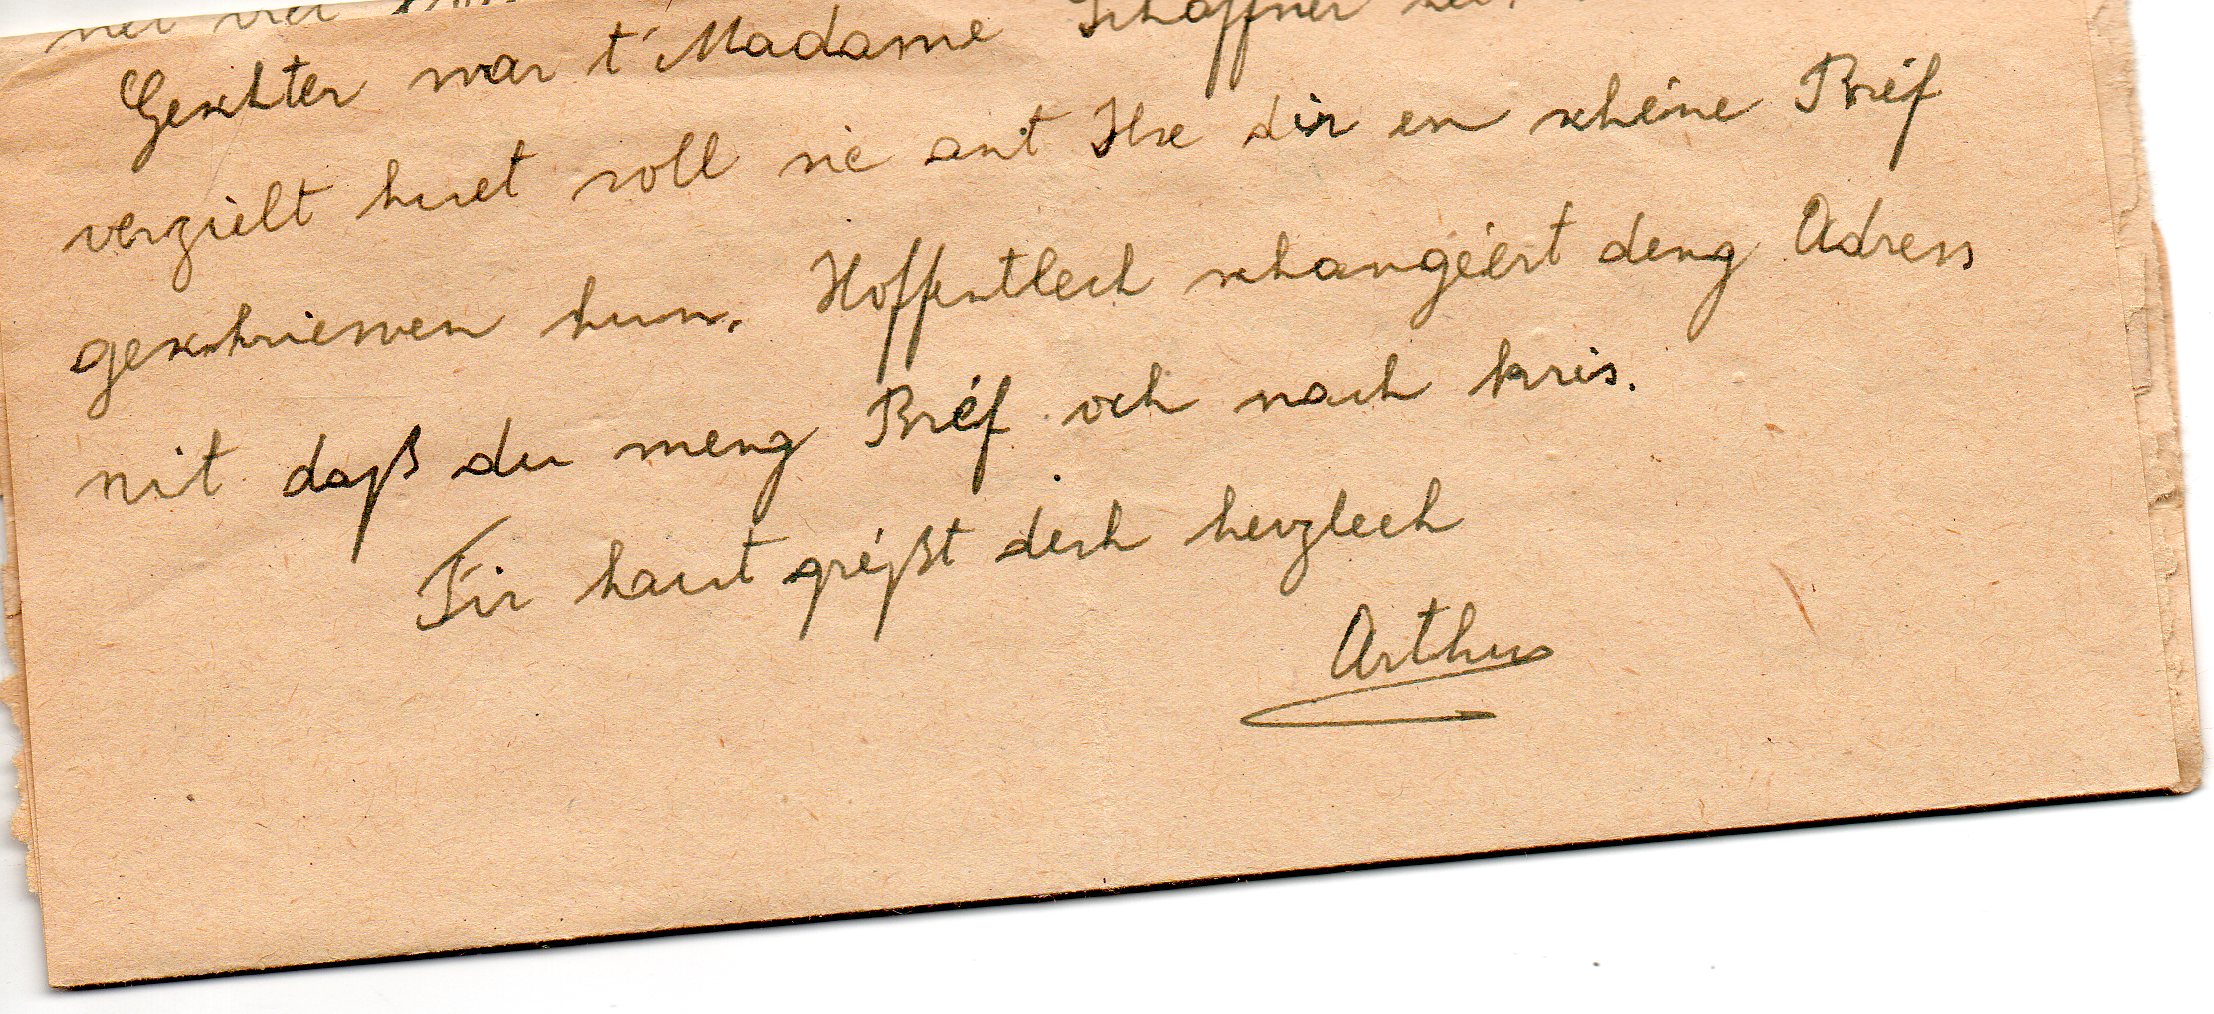 net viel
Geschter war t' Madame Schaffner
verzielt huet soll sie ant Ilse dir en schéine Bréf
geschriewen hun. Hoffentlech schangéiert deng Adress
nit daß du meng Bréf och nach kris.
Fir haut gréißt dich herzlech
Arthur